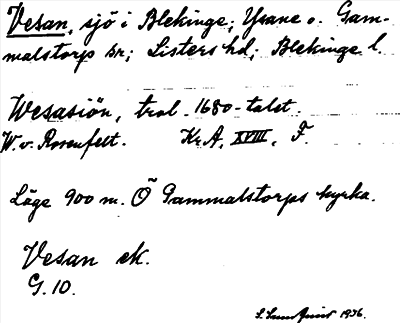 Vesan, sjö i Blekinge; Ysane o. Gam-
malstorp snr; Listers hd; Blekinge l.
Wesasiön, trol. 1680-talet.
W. v. Rosenfelt. Kr.A, XVIII, F.
Läge 900 m. Ö Gammalstorps kyrka.
Vesan ek.
G. 10.
1936.